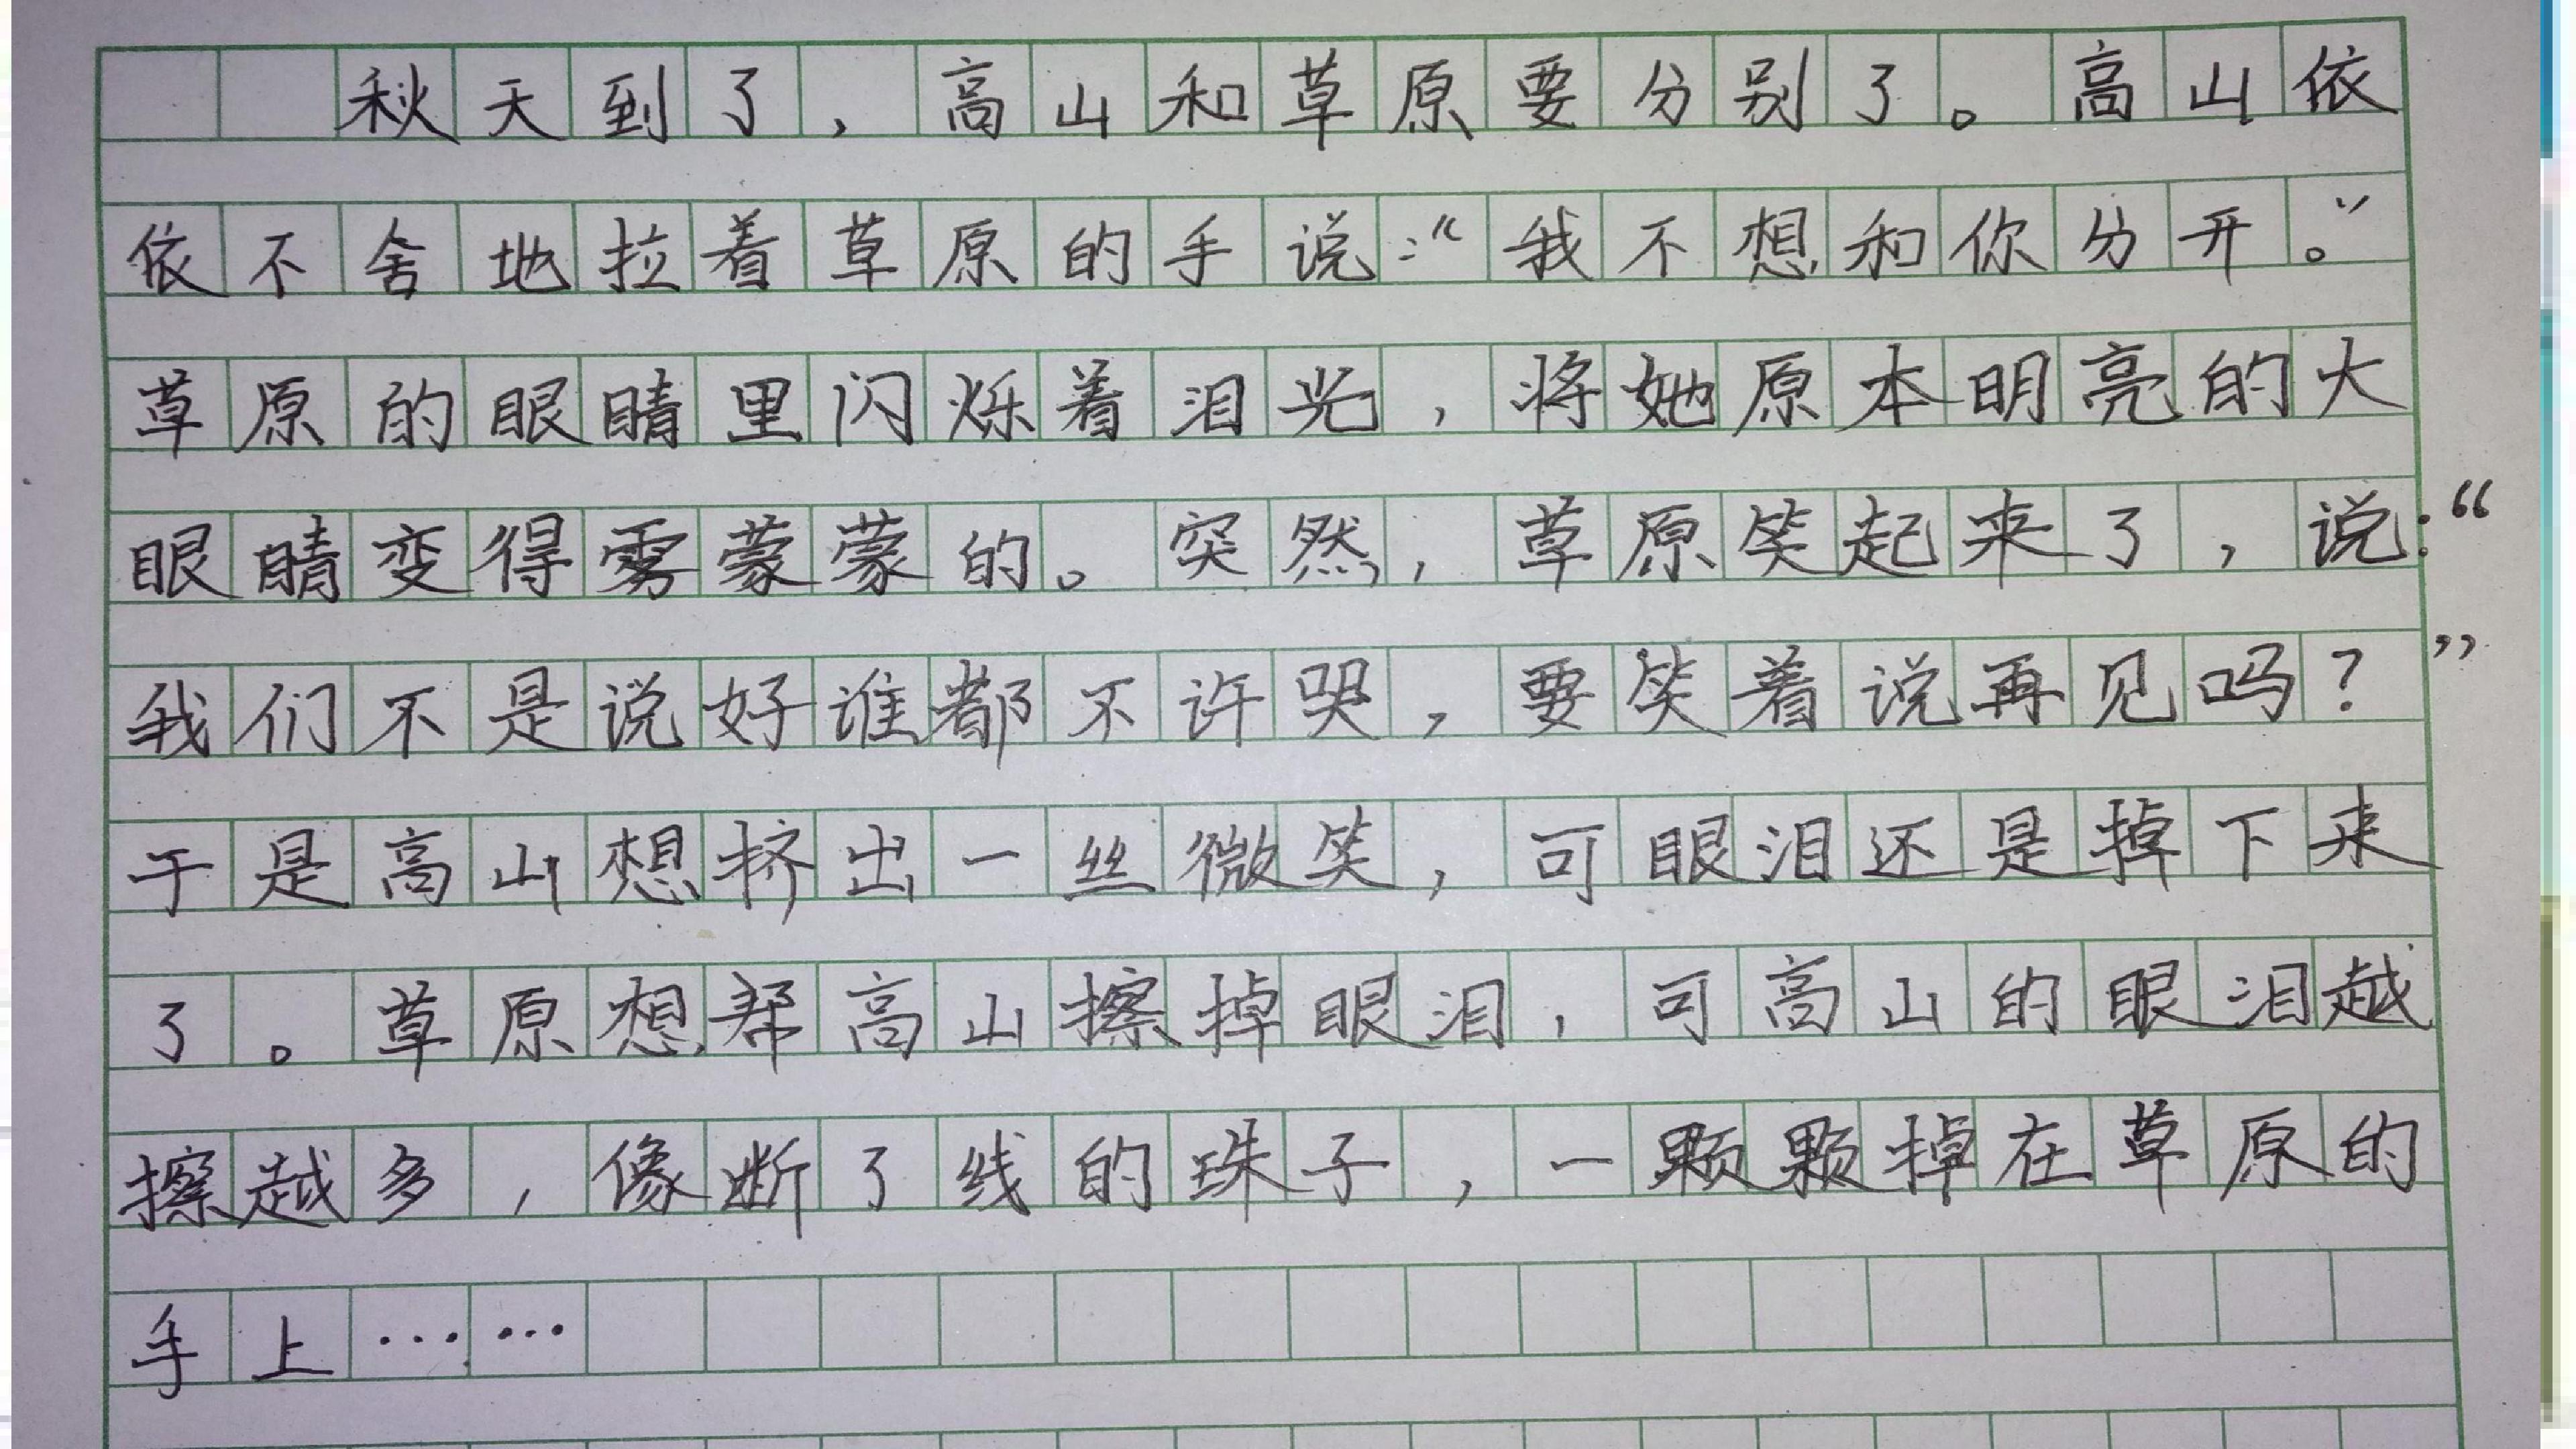 秋天到了，高山和草原要分别了。高山依
依不舍地拉着草原的手说：“我不想和你分开。”
草原的眼睛里闪烁着泪光，将她原本明亮的大
眼睛变得雾蒙蒙的。突然，草原笑起来了，说：“
我们不是说好谁都不许哭，要笑着说再见吗？”
于是高山想挤出一丝微笑，可眼泪还是掉下来
了。草原想帮高山擦掉眼泪，可高山的眼泪越
擦越多，像断了线的珠子，一颗颗掉在草原的
手上……